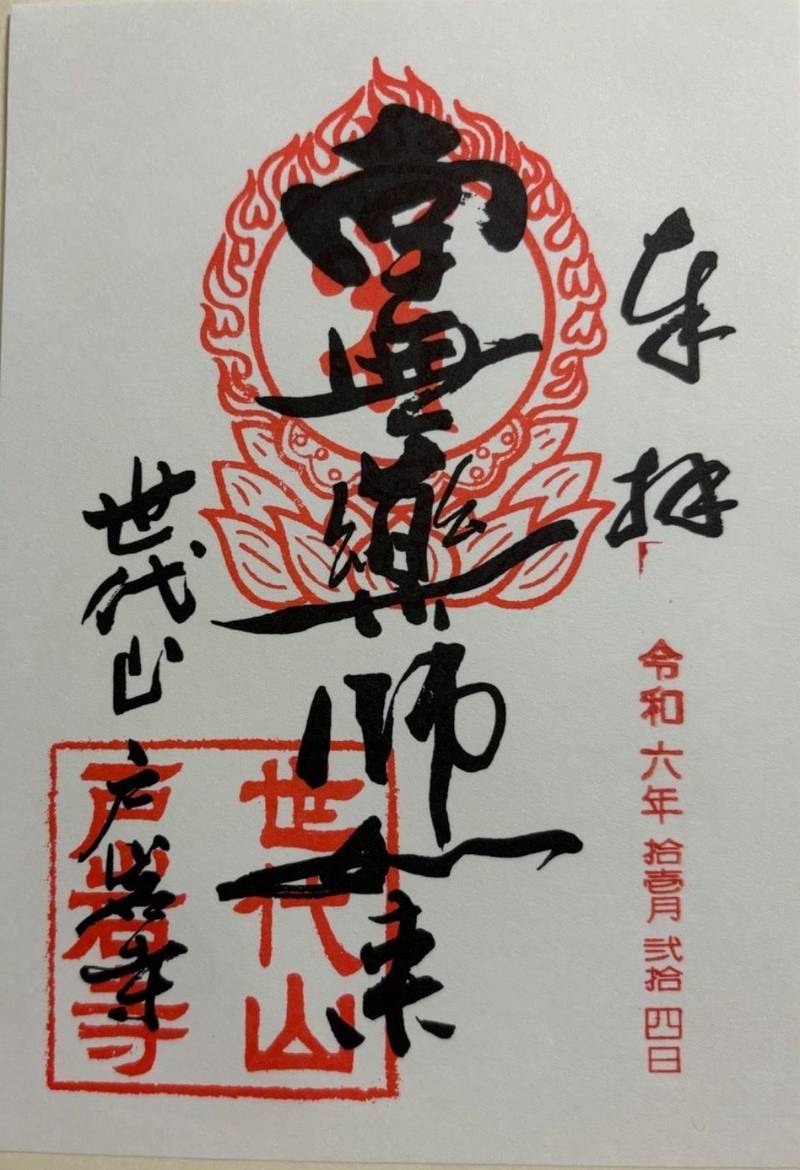 奉拝
令和六年 拾壱月 弐拾四日
藥師如来
世代山 戸岩寺
世代山
戸岩寺